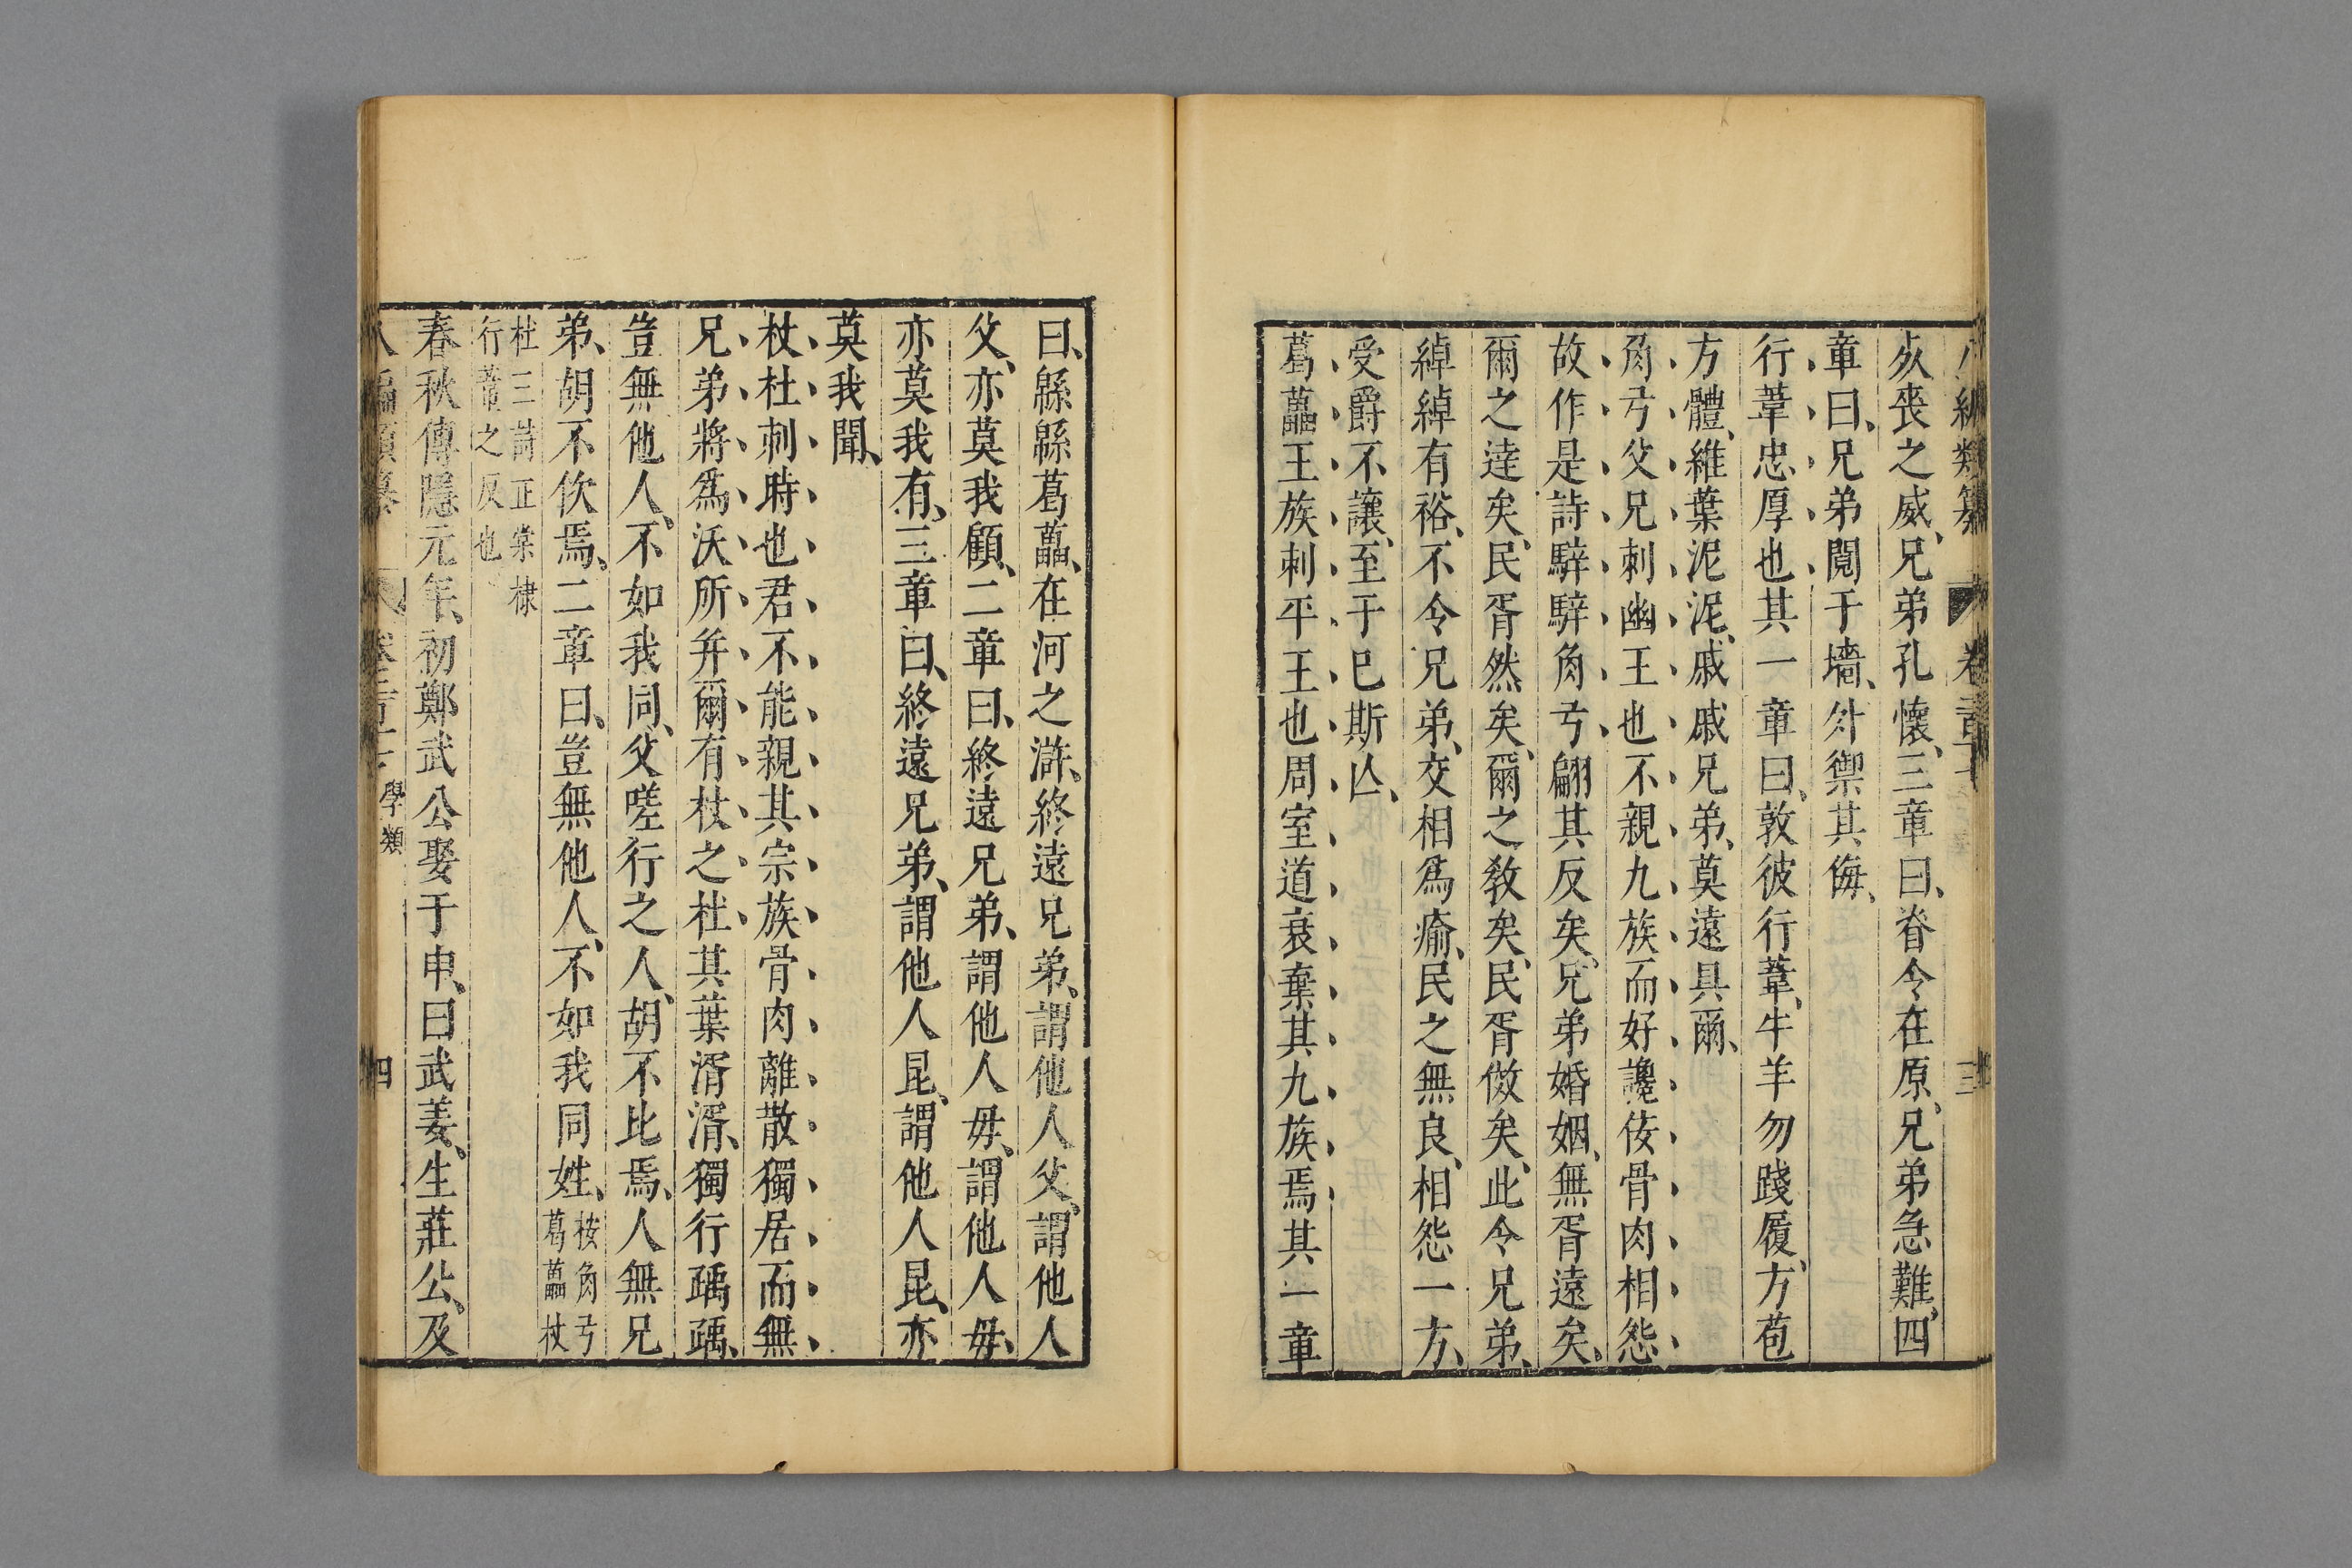 八編類纂 卷二百十 三
𣦸喪之威、兄弟孔懷、三章曰、脊令在原、兄弟急難、四
章曰、兄弟䦧于墻、外禦其侮、
行葦忠厚也其一章曰、敦彼行葦、牛羊勿踐履、方苞
方體、維葉泥泥、戚戚兄弟、莫遠具爾、
角弓父兄刺幽王也不親九族而好讒佞骨肉相怨
故作是詩騂騂角弓翩其反矣、兄弟婚姻、無胥遠矣、
爾之逹矣、民胥然矣、爾之敎矣、民胥傚矣、此令兄弟、
綽綽有裕、不令兄弟、交相爲瘉、民之無良、相怨一方、
受爵不讓、至于巳斯亾、
葛藟王族刺平王也周室道衰棄其九族焉其一章
曰、緜緜葛藟、在河之滸、終遠兄弟、謂他人父、謂他人
父、亦莫我顧、二章曰、終遠兄弟、謂他人毋、謂他人毋、
亦莫我有、三章曰、終遠兄弟、謂他人昆、謂他人昆、亦
莫我聞、
杕杜刺時也君不能親其宗族骨肉離散獨居而無
兄弟將爲沃所幷爾有杕之杜其葉湑湑、獨行踽踽、
豈無他人、不如我同、父嗟行之人、胡不比焉、人無兄
弟、胡不佽焉、二章曰、豈無他人、不如我同姓、桉角弓
葛藟杕
杜三詩正棠棣
行葦之反也
春秋傳隱元年、初鄭武公娶于申、曰武姜、生莊公、及
八編類纂 卷二百十 學類 四